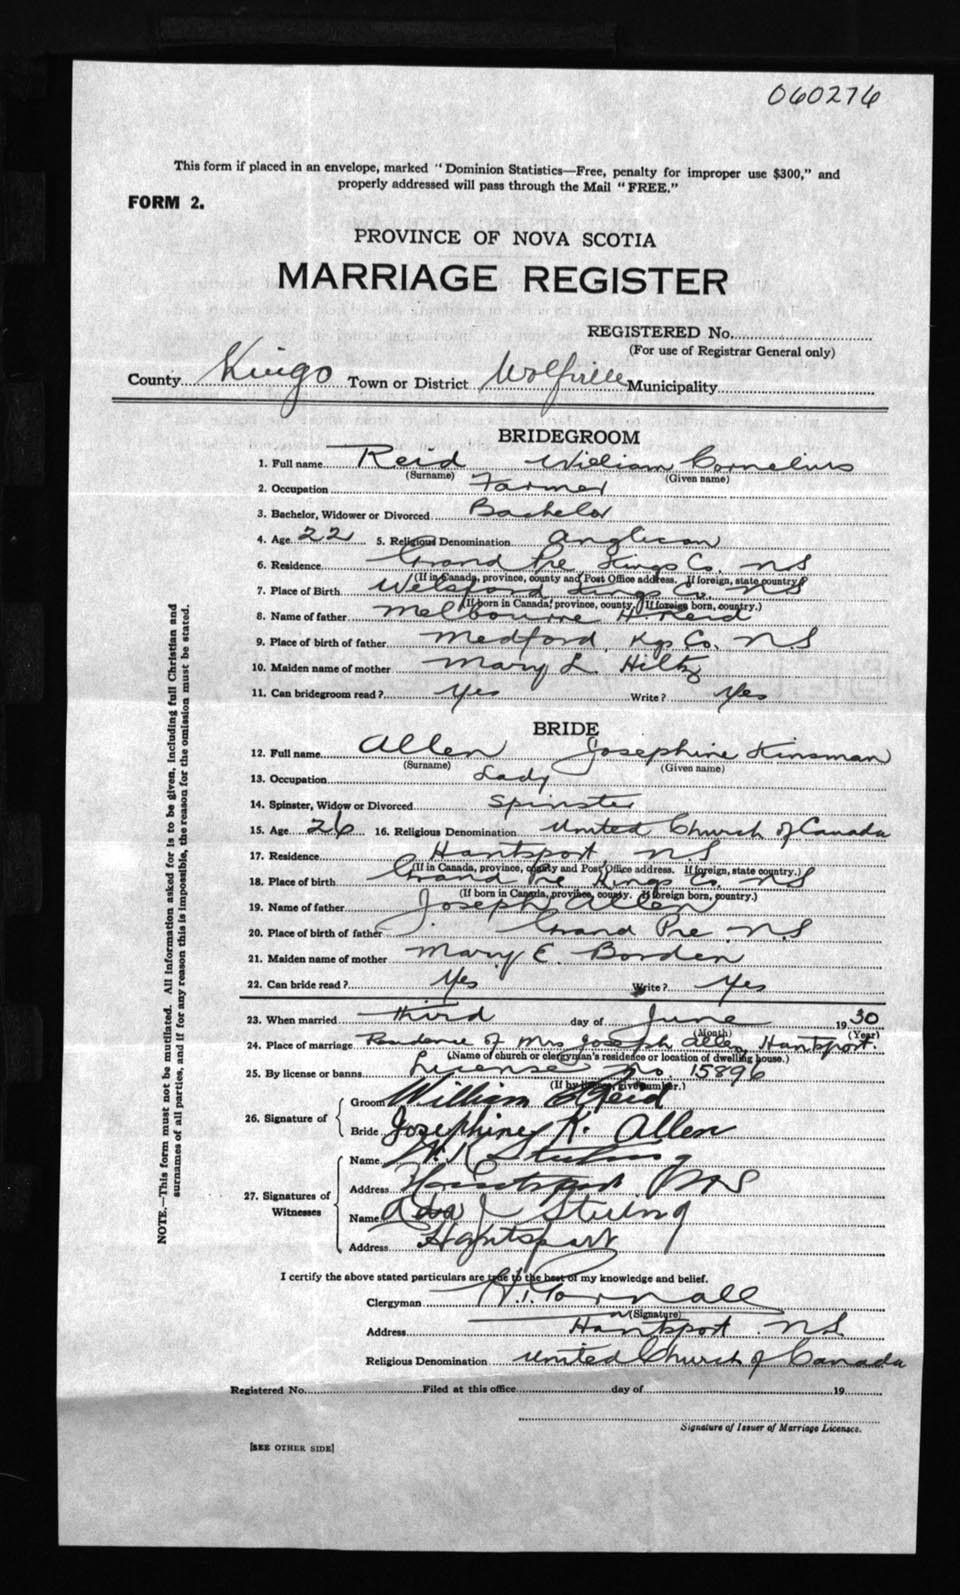 060276
This form if placed in an envelope, marked "Dominion Statistics—Free, penalty for improper use $300," and
properly addressed will pass through the Mail "FREE."
FORM 2.
PROVINCE OF NOVA SCOTIA
MARRIAGE REGISTER
REGISTERED No.
(For use of Registrar General only)
County Kings Town or District Wolfville Municipality
BRIDEGROOM
1. Full name Reid William Cornelius
(Surname) (Given name)
2. Occupation Farmer
3. Bachelor, Widower or Divorced Bachelor
4. Age 22 5. Religious Denomination Anglican
6. Residence Grand Pre Kings Co. NS
(If in Canada, province, county and Post Office address. If foreign, state country.)
7. Place of Birth Welsford Kings Co. NS
(If born in Canada, province, county. If foreign born, country.)
8. Name of father Melbourne H. Reid
9. Place of birth of father Medford, Kgs Co. N.S
10. Maiden name of mother Mary L Hiltz
11. Can bridegroom read? Yes Write? Yes
BRIDE
12. Full name Allen Josephine Kinsman
(Surname) (Given name)
13. Occupation Lady
14. Spinster, Widow or Divorced Spinster
15. Age 26 16. Religious Denomination United Church of Canada
17. Residence Hantsport, NS
(If in Canada, province, county and Post Office address. If foreign, state country.)
18. Place of birth Grand Pre Kings Co. NS
(If born in Canada, province, county. If foreign born, country.)
19. Name of father Joseph Allen
20. Place of birth of father Grand Pre N.S
21. Maiden name of mother Mary E. Borden
22. Can bride read? Yes Write? Yes
23. When married third day of June 1930
(Month) (Year)
24. Place of marriage Residence of Mrs Joseph Allen, Hantsport.
(Name of church or clergyman's residence or location of dwelling house.)
25. By license or banns License No. 15896
(If by license, give number.)
26. Signature of
Groom William C Reid
Bride Josephine K. Allen
27. Signatures of Witnesses
Name
Address Hantsport NS
Name Ada Sterling
Address Hantsport
I certify the above stated particulars are true to the best of my knowledge and belief.
Clergyman
(Signature)
Address Hantsport N.S.
Religious Denomination United Church of Canada
Registered No. Filed at this office day of 19
Signature of Issuer of Marriage Licenses.
[SEE OTHER SIDE]
NOTE.—This form must not be mutilated. All information asked for is to be given, including full Christian and
surnames of all parties, and if for any reason this is impossible, the reason for the omission must be stated.